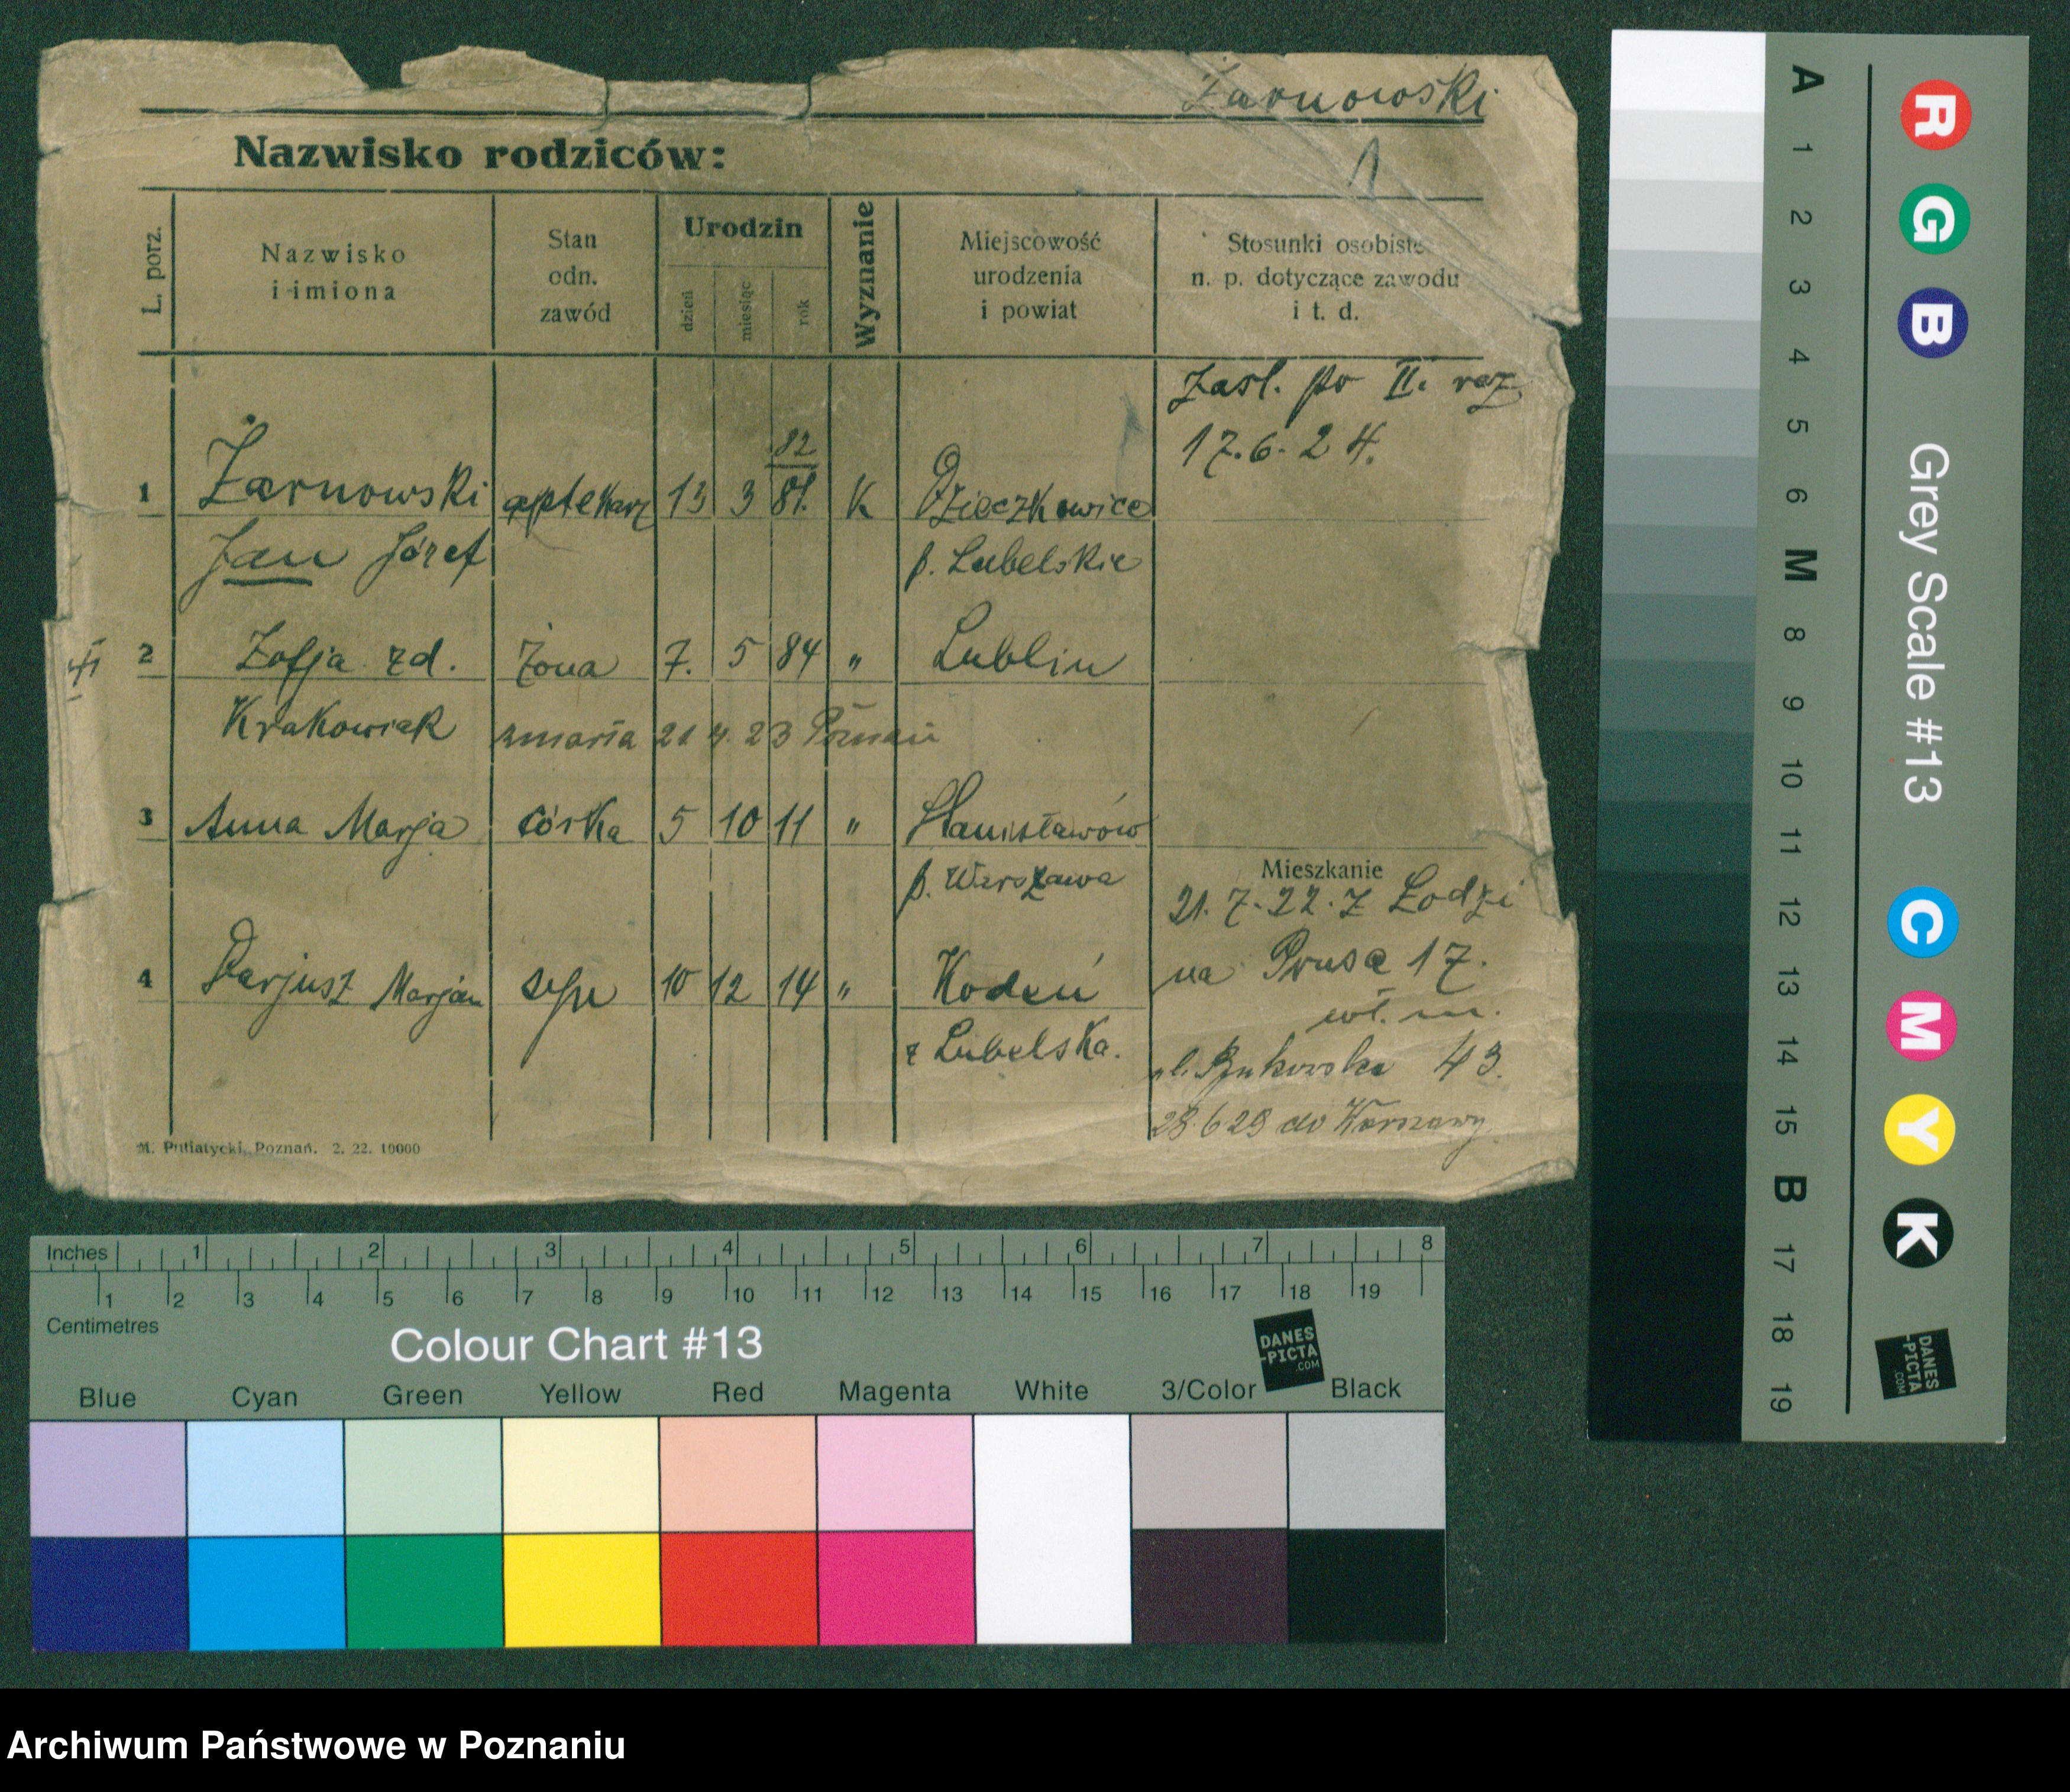 Żarnowski
Nazwisko rodziców:
1
L. porz.
Nazwisko
i imiona
Stan
odn.
zawód
Urodzin
dzień
miesiąc
rok
Wyznanie
Miejscowość
urodzenia
i powiat
Stosunki osobiste
n. p. dotyczące zawodu
i t. d.
Zasl. po II. raz
17.6.24.
82
1 Żarnowski aptekarz 13 3 81. K Dzieczkowice
Jan Józef p. Lubelskie
2 Zofja zd. żona 7. 5 84 " Lublin
Krakowiak zmarła 21 4. 23 Poznań
3 Anna Marja córka 5 10 11 " Stanisławów
p. Warszawa
Mieszkanie
21.7.22. z Łodzi
4 Darjusz Marjan syn 10 12 14 " Kodeń
z Lubelska.
na Prusa 17.
wł. m.
ul. Bukowska 43.
28.6 29 do Warszawy
M. Putiatycki, Poznań. 2. 22. 10000
Inches 1 2 3 4 5 6 7 8
1 2 3 4 5 6 7 8 9 10 11 12 13 14 15 16 17 18 19
Centimetres
Colour Chart #13
DANES
-PICTA
.COM
Blue Cyan Green Yellow Red Magenta White 3/Color Black
A 1 2 3 4 5 6 M 8 9 10 11 12 13 14 15 B 17 18 19
R G B
Grey Scale #13
C M Y K
DANES
-PICTA
.COM
Archiwum Państwowe w Poznaniu